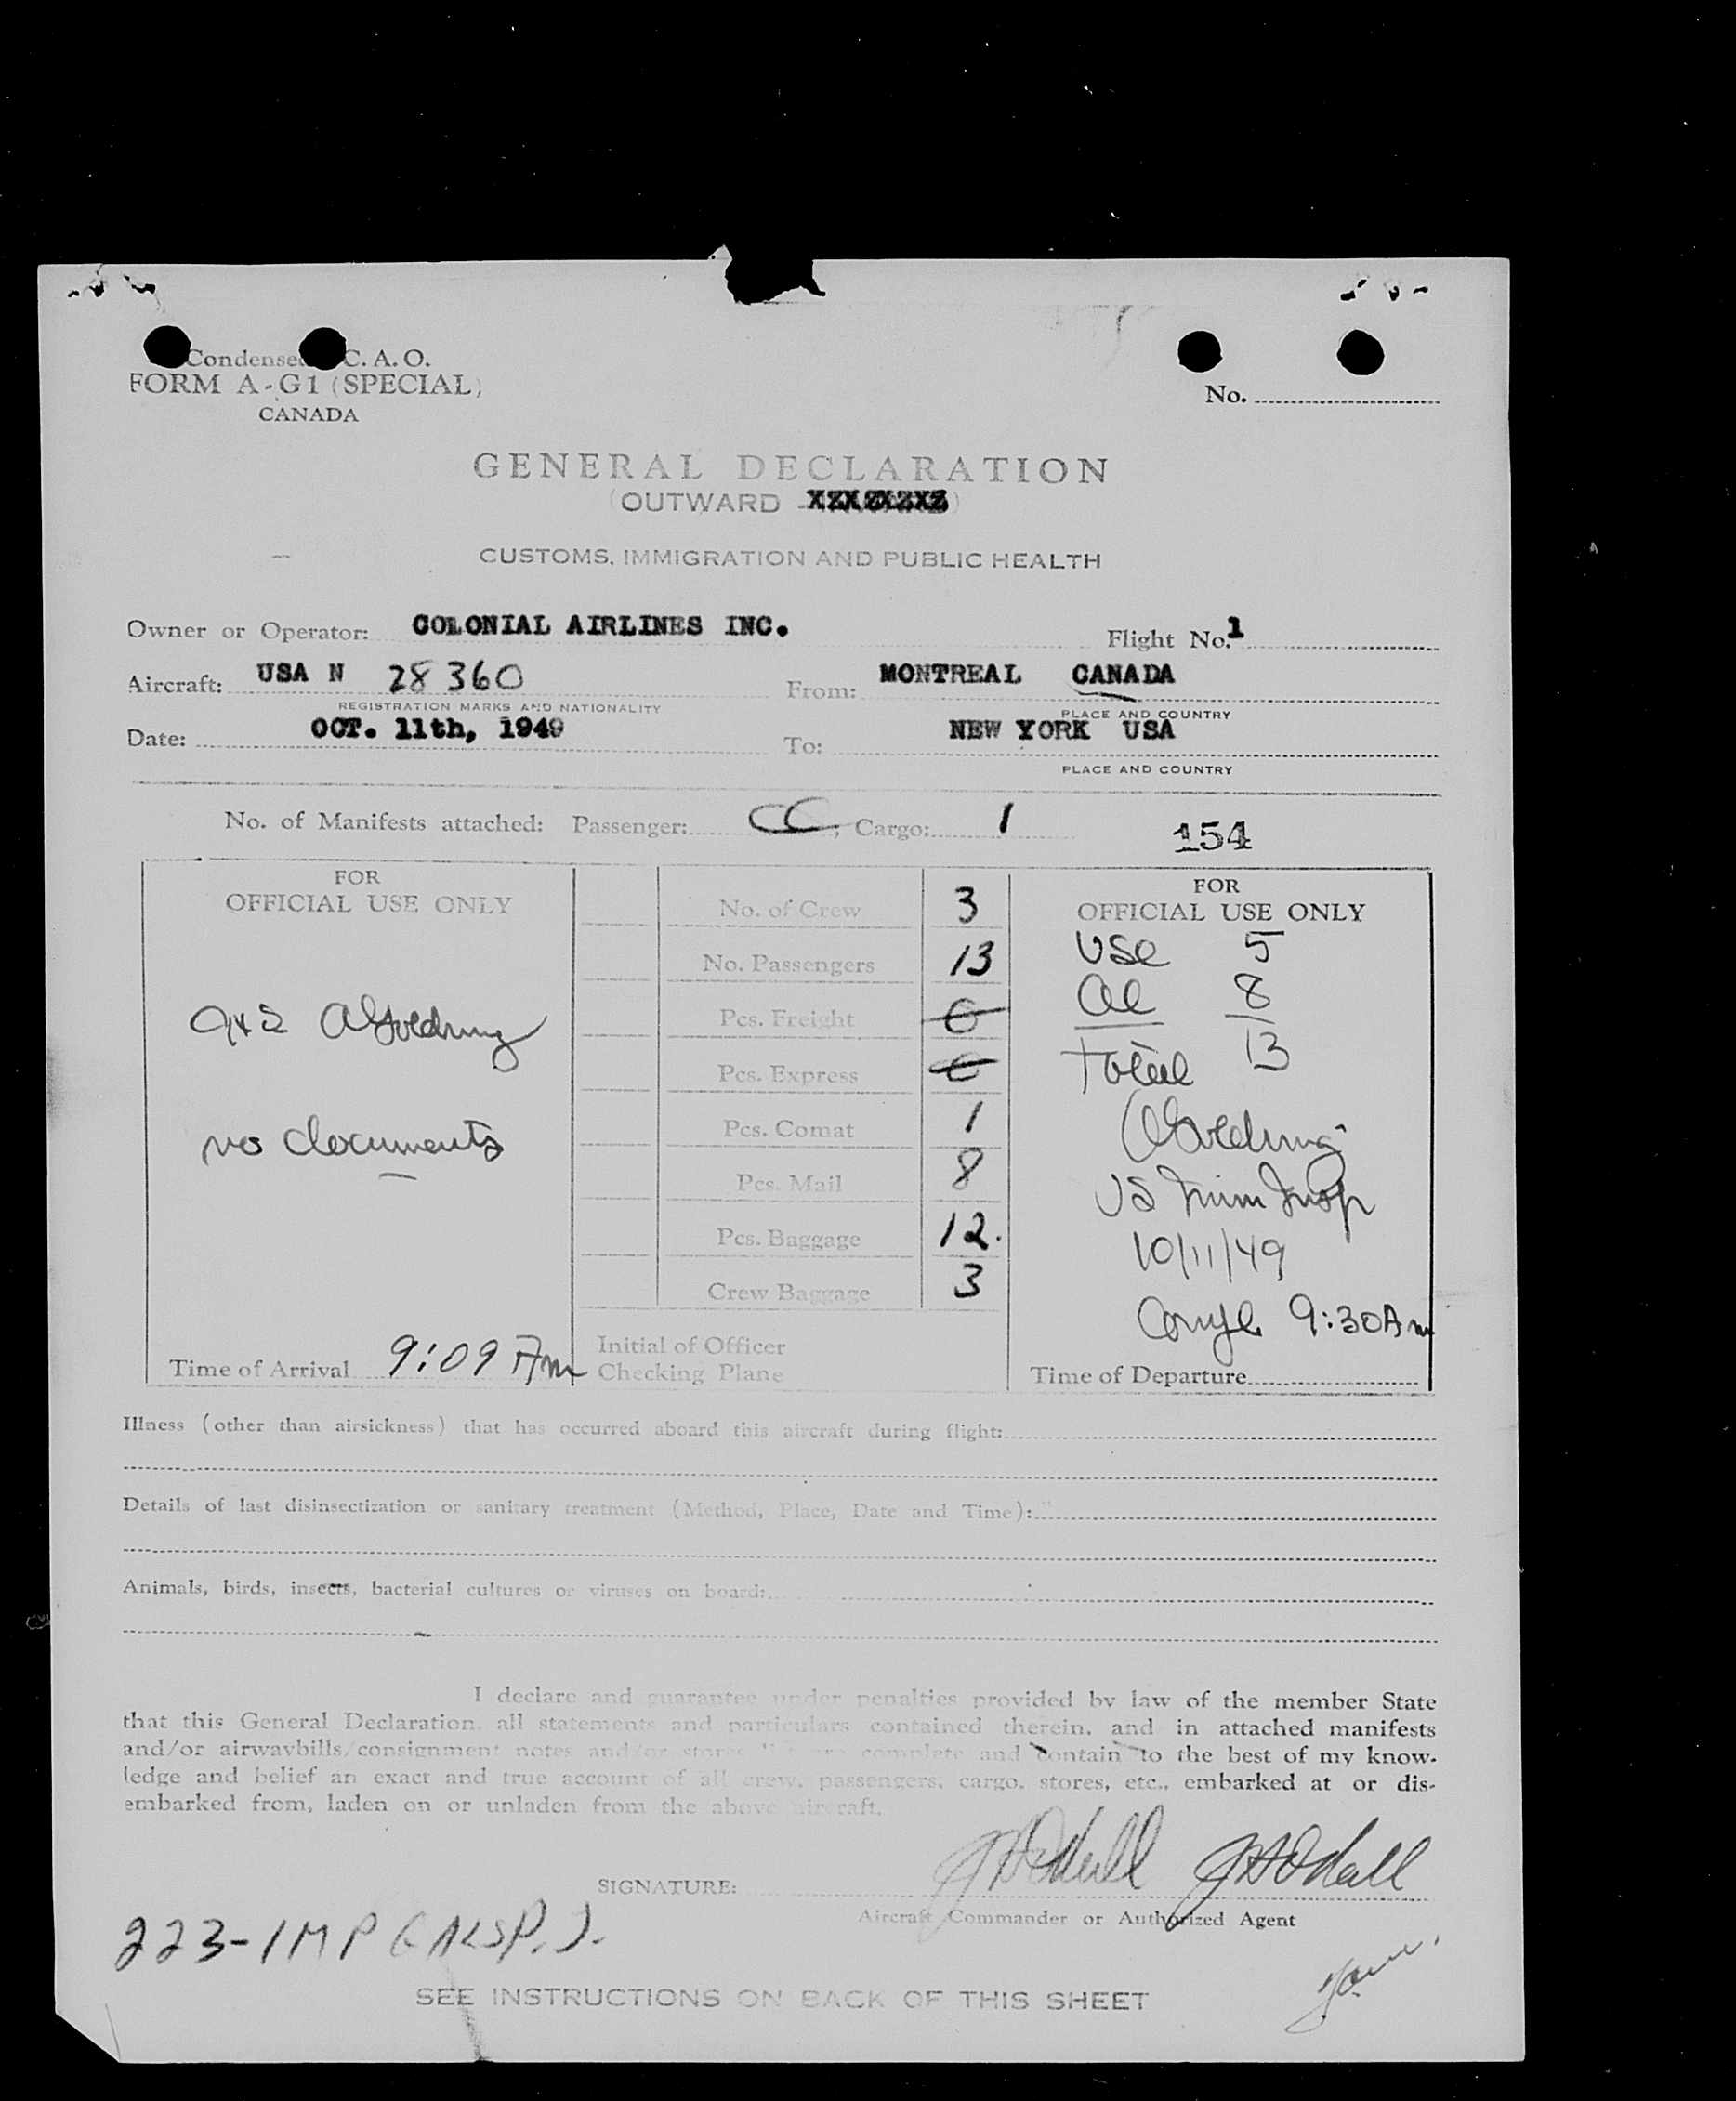 Condensed C. A. O.
FORM A-G1 (SPECIAL)
CANADA
No.
GENERAL DECLARATION
(OUTWARD XZXZXZXZ)
CUSTOMS, IMMIGRATION AND PUBLIC HEALTH
Owner or Operator: COLONIAL AIRLINES INC. Flight No. 1
Aircraft: USA N 28360 From: MONTREAL CANADA
REGISTRATION MARKS AND NATIONALITY PLACE AND COUNTRY
Date: OCT. 11th, 1949 To: NEW YORK USA
PLACE AND COUNTRY
No. of Manifests attached: Passenger: CC, Cargo: 1
154
FOR
OFFICIAL USE ONLY
no documents
Time of Arrival 9:09 Am
No. of Crew 3
No. Passengers 13
Pcs. Freight 0
Pcs. Express 0
Pcs. Comat 1
Pcs. Mail 8
Pcs. Baggage 12.
Crew Baggage 3
Initial of Officer
Checking Plane
FOR
OFFICIAL USE ONLY
USC 5
al 8
Total 13
US Imm Insp
10/11/49
9:30 Am
Time of Departure
Illness (other than airsickness) that has occurred aboard this aircraft during flight:
Details of last disinsectization or sanitary treatment (Method, Place, Date and Time):
Animals, birds, insects, bacterial cultures or viruses on board:
I declare and guarantee under penalties provided by law of the member State
that this General Declaration, all statements and particulars contained therein, and in attached manifests
and/or airwaybills/consignment notes and/or stores list are complete and contain to the best of my know-
ledge and belief an exact and true account of all crew, passengers, cargo, stores, etc., embarked at or dis-
embarked from, laden on or unladen from the above aircraft.
SIGNATURE:
Aircraft Commander or Authorized Agent
223-IMP (INSP.).
SEE INSTRUCTIONS ON BACK OF THIS SHEET